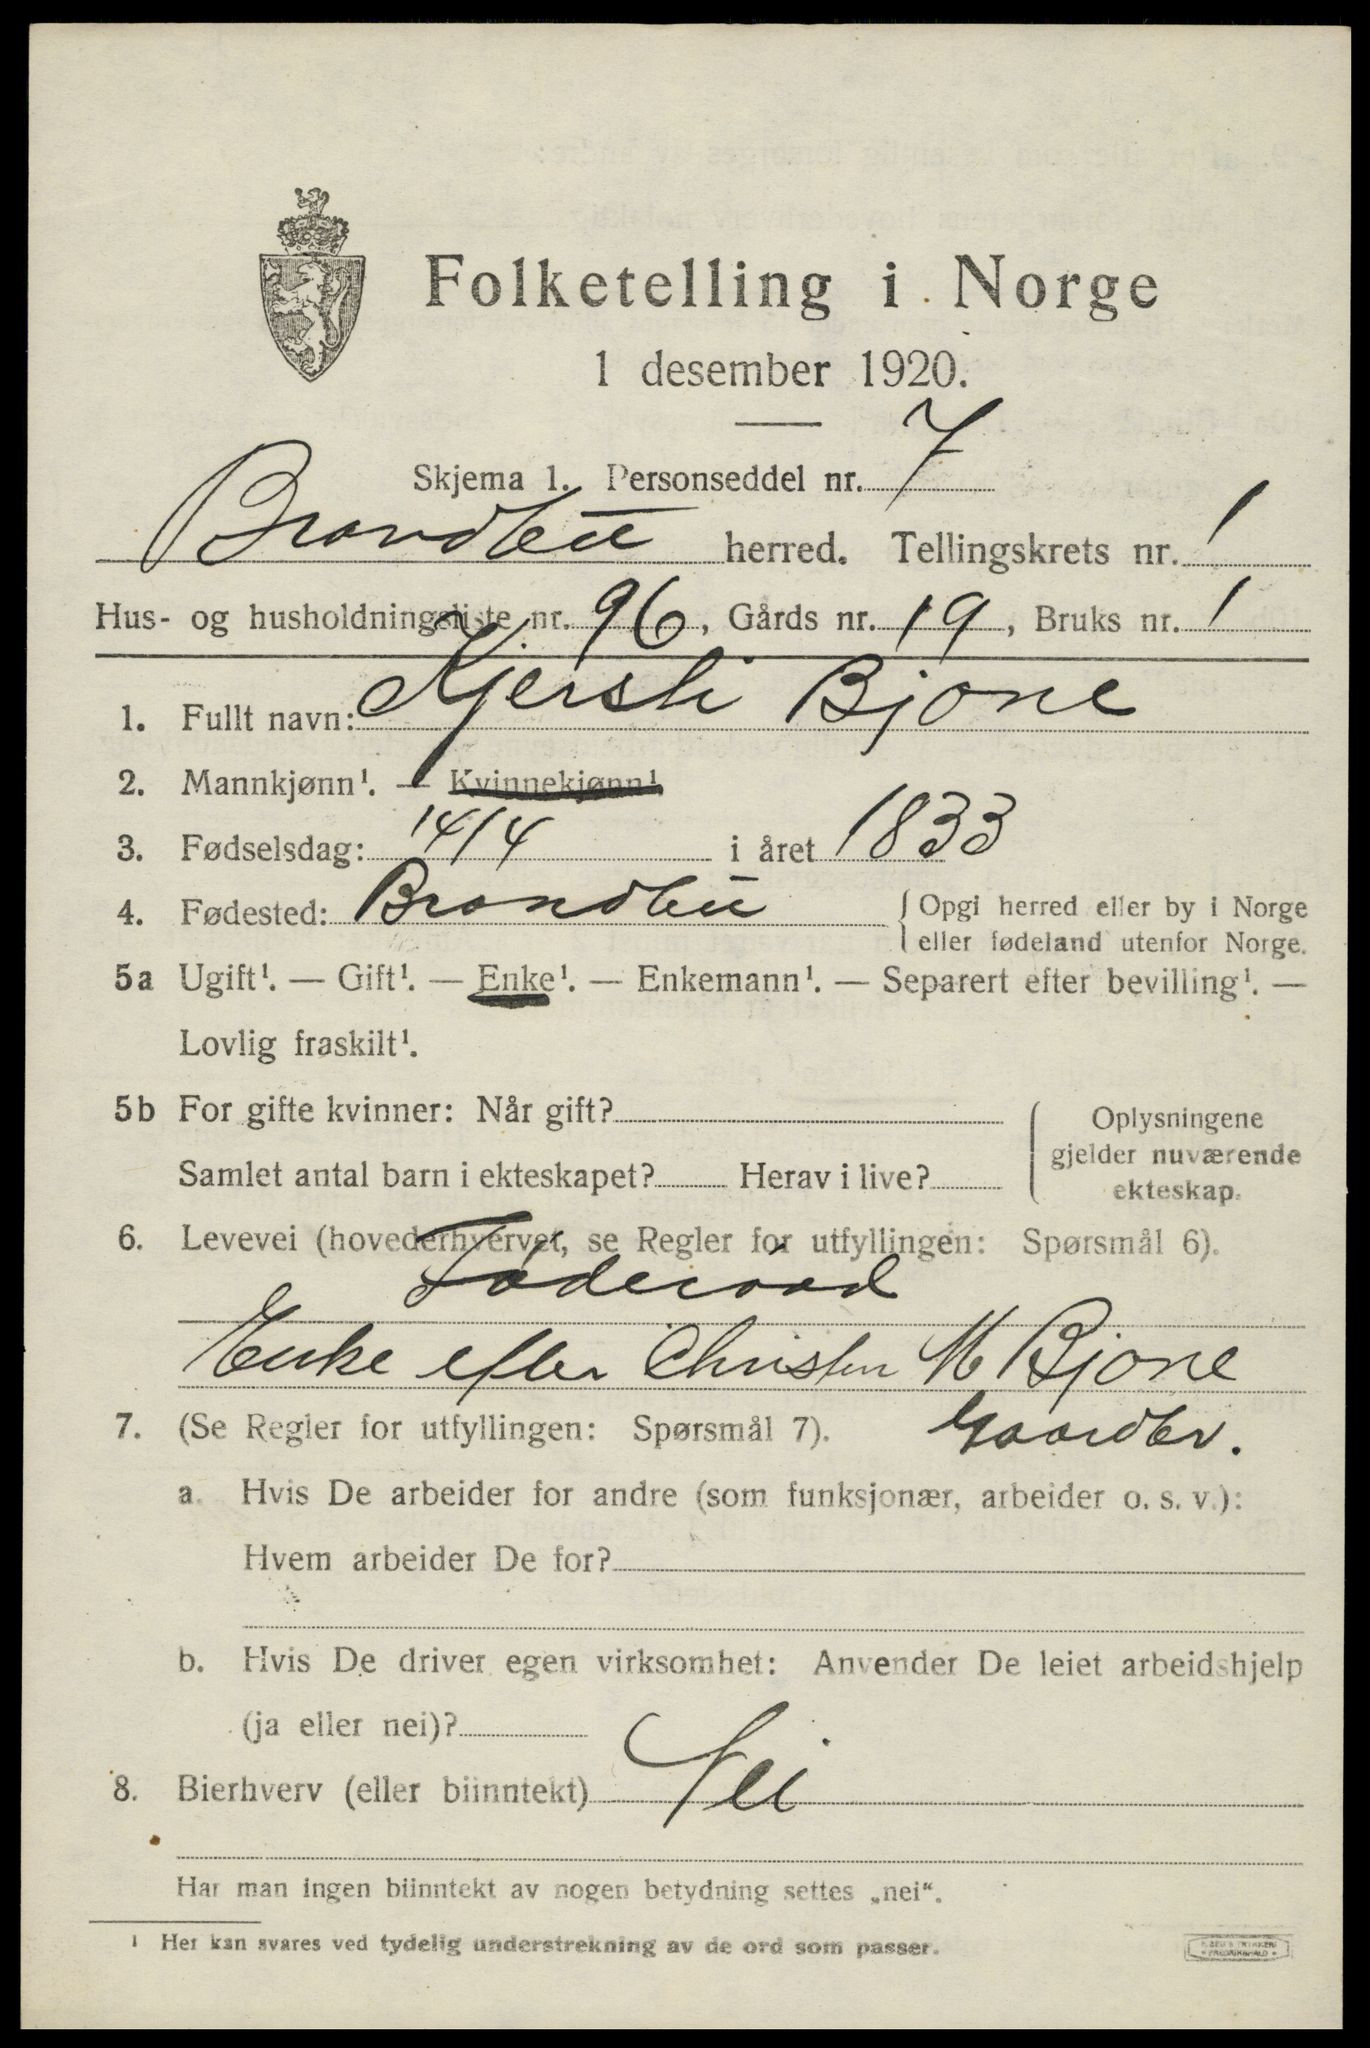 Folketelling i Norge
1 desember 1920.
Skjema 1. Personseddel nr. 7
Brandbu herred. Tellingskrets nr. 1
Hus- og husholdningsliste nr. 96, Gårds nr. 19, Bruks nr. 1
1. Fullt navn: Kjersti Bjone
2. Mannkjønn¹. — Kvinnekjønn¹.
3. Fødselsdag: 14/4 i året 1833
4. Fødested: Brandbu { Opgi herred eller by i Norge
eller fødeland utenfor Norge.
5a Ugift¹. — Gift¹. — Enke¹. — Enkemann¹. — Separert efter bevilling¹. —
Lovlig fraskilt¹.
5b For gifte kvinner: Når gift?
Samlet antal barn i ekteskapet? Herav i live?
{ Oplysningene
gjelder nuværende
ekteskap.
6. Levevei (hovederhvervet, se Regler for utfyllingen: Spørsmål 6).
Föderaad
Enke efter Christen M Bjone
Gaardbr.
7. (Se Regler for utfyllingen: Spørsmål 7).
a. Hvis De arbeider for andre (som funksjonær, arbeider o. s. v.):
Hvem arbeider De for?
b. Hvis De driver egen virksomhet: Anvender De leiet arbeidshjelp
(ja eller nei)?
8. Bierhverv (eller biinntekt) Nei
Har man ingen biinntekt av nogen betydning settes „nei“.
¹ Her kan svares ved tydelig understrekning av de ord som passer.